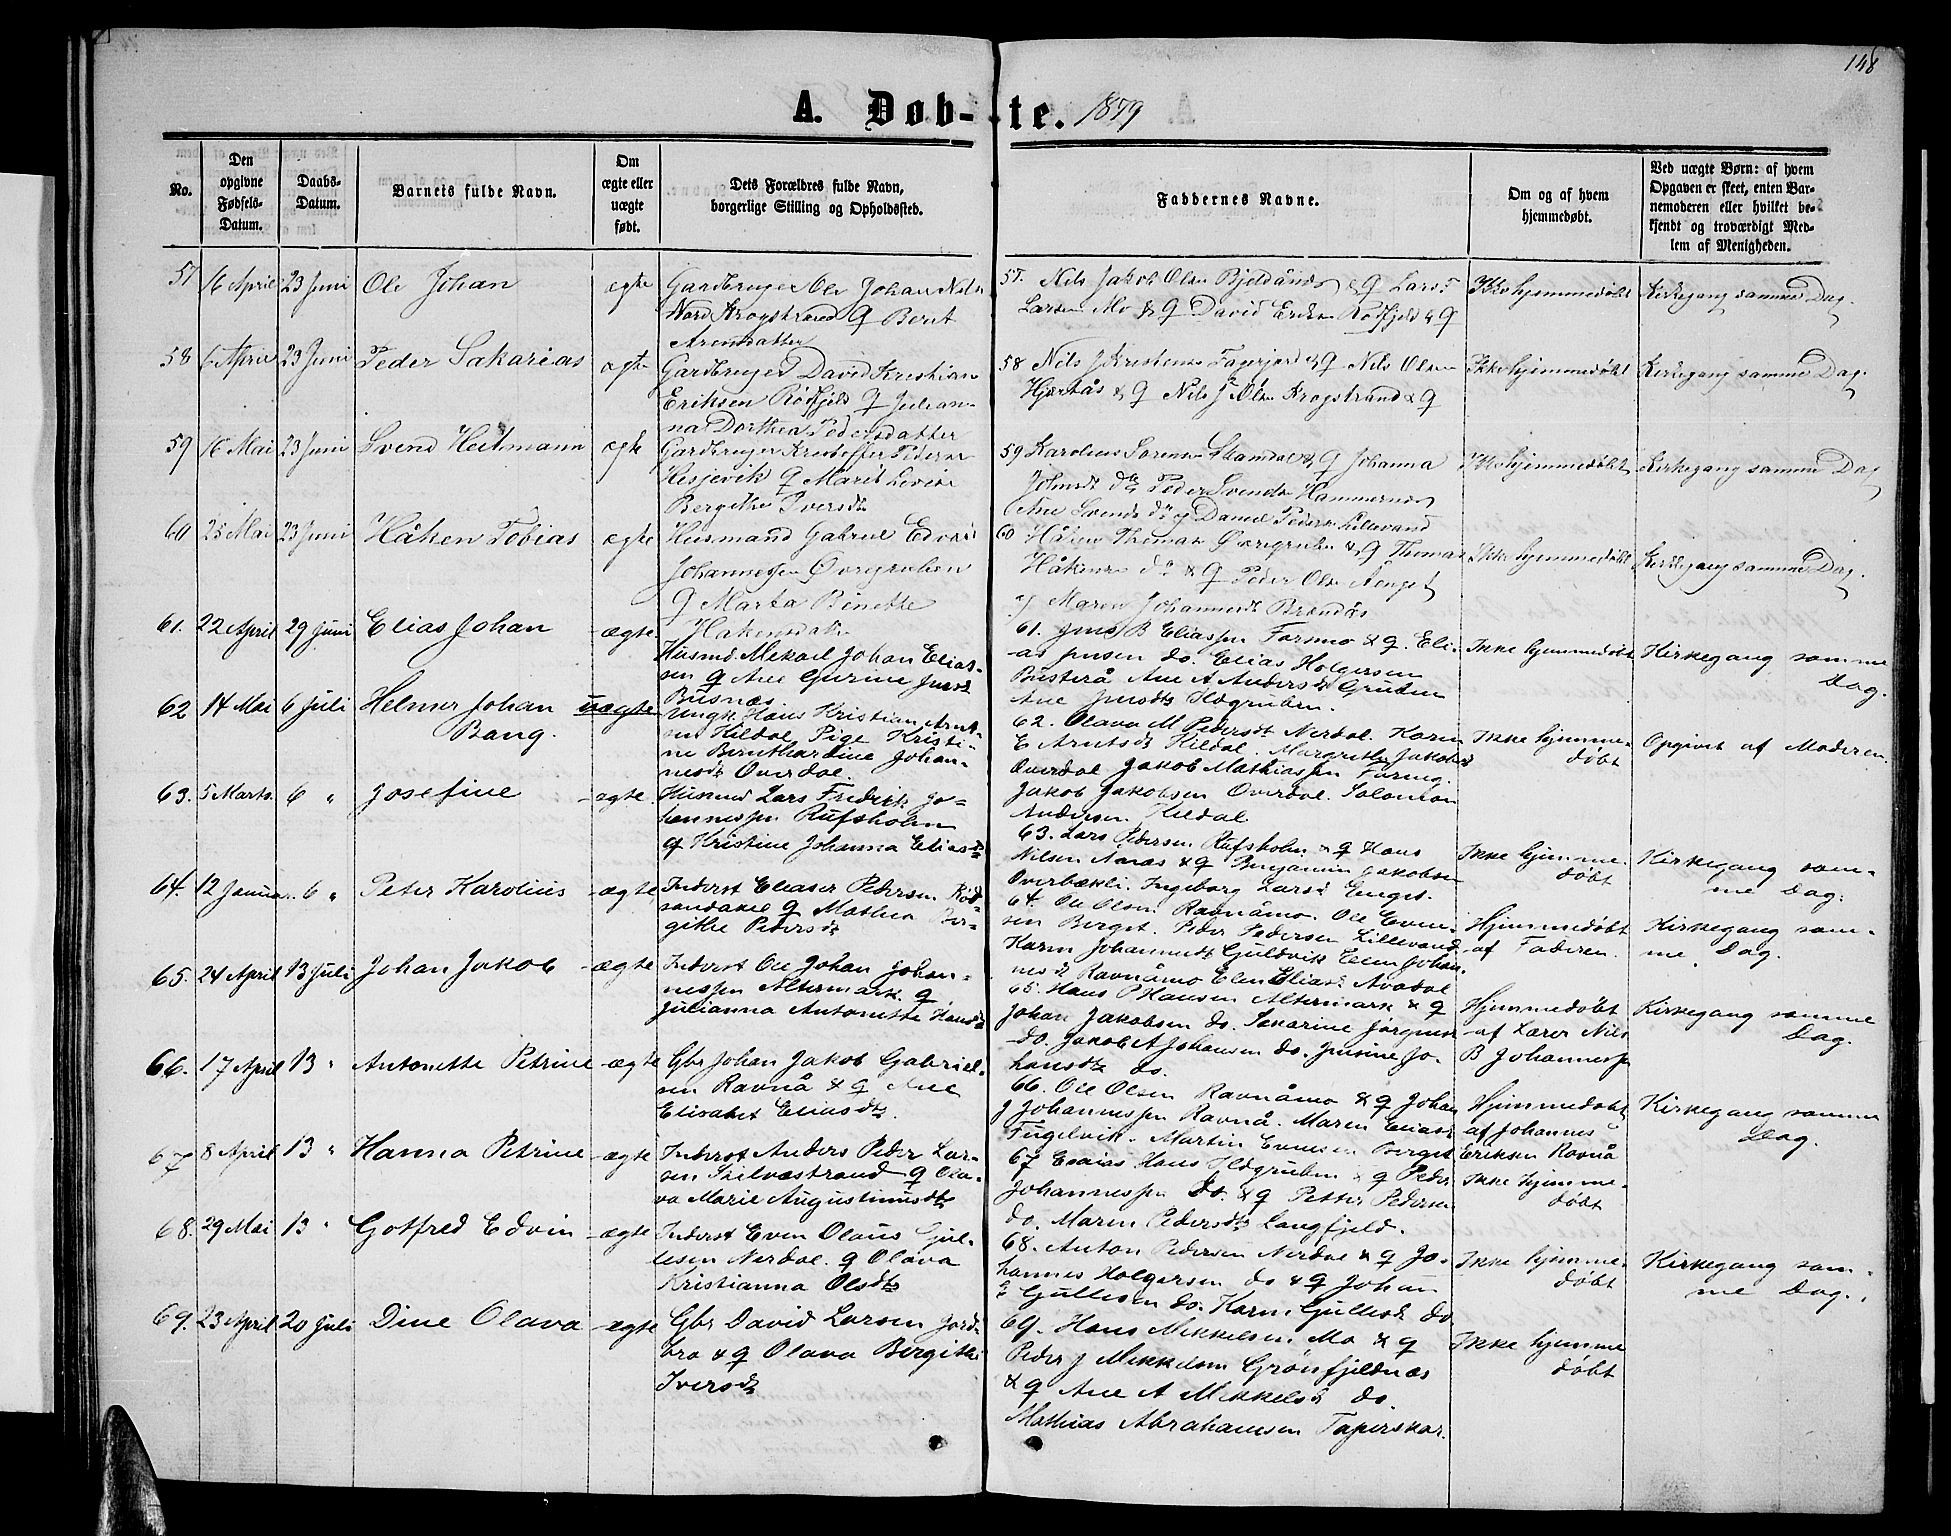 148
A. Døb-te. 1879
No.
Den opgivne Fødsels-Datum.
Daabs-Datum.
Barnets fulde Navn.
Om ægte eller uægte født.
Dets Forældres fulde Navn, borgerlige Stilling og Opholdssted.
Faddernes Navne.
Om og af hvem hjemmedøbt.
Ved uægte Børn: af hvem Opgaven er skeet, enten Barnemoderen eller hvilket bekjendt og troværdigt Medlem af Menigheden.
57 16 April 23 Juni Ole Johan ægte Gardbruger Ole Johan Nils
Nord Krogstrand & Berit
Arensdatter
57. Nils Jakob Olsn Bjeldånes & Lars
Larsen Mo & David Erikn Rödfjeld &
Ikke hjemmedøbt Kirkegang samme Dag.
58 6 April 23 Juni Peder Sakarias ægte Gardbruger David Kristian
Eriksen Rödfjeld & Julian-
na Dorthea Pedersdatter
58 Nils J Kristensn & Nils Olsen
Hjartås & Nils J Olsn Krogstrand &
Ikke hjemmedøbt Kirkegang samme Dag.
59 16 Mai 23 Juni Svend Heitmann ægte Gardbruger Kristoffer Pedersen
& Marit
Bergithe Iversdtr
59 Karolius Sørensn & Johanna
Peder Svendsn Hammernes
Ane Svendsd Daniel Pedersn Lillevand
Ikke hjemmedøbt Kirkegang samme Dag
60 25 Mai 23 Juni Håken Tobias ægte Husmand Gabriel Edvard
Johannessen Övrgruben
& Marta Binette
Hakensdatter
60 Håken Thomasn Övregruben & Thomas
Håkensn do & Peder Olsn Aenget
Maren Johannesdt Brendås
Ikke hjemmedøbt Kirkegang samme Dag.
61. 22 April 29 Juni Elias Johan ægte Husmd. Mekail Johan Elias-
sen & Ane Gurine Jensdt
Busnæs.
61. Jens B Eliassen Forsmo & Eli-
as Jensen do. Elias Holgersen
Busterå Ane A Andersdt Gruben
Ane Jensdt Ildgruben.
Ikke hjemmedøbt Kirkegang samme
Dag.
62 14 Mai 6 Juli Helmer Johan
Bang.
uægte Ungk. Hans Kristian Arnt-
sen Hildal Pige Kristi-
ne Bernthardine Johan-
nesdt Överdal.
62. Olava M Pedersdt Nerdal. Karen
E Arntsdt Hildal. Margrethe Jakobsd
Overdal Jakob Mathiassen Foring.
Jakob Jakobsen Overdal. Salomon
Andersen Hildal
Ikke hjemme-
døbt
Opgivet af Moderen
63. 5 Marts. 6 " Josefine ægte. Husmd Lars Fredrik Jo-
hannessen Rufsholm
& Kristine Johanna Eliasdt
63. Lars Pedersen Rufsholm & Hans
Nilsen Naras & Benjamin Jakobsen
Overbækli. Ingeborg Larsd Enget.
Ikke hjemme.
døbt
Kirkegang sam-
me Dag.
64. 12 Januar. 6 " Peter Karolius ægte Inderst Eliaser Pedersen Röd-
& Mathea Ber-
githe Pedersdt
64. Ole Olsen Ravnåmo. Ole Even-
sen Berget. Peder Pedersen Lillevand
Karen Johannesdt Guldvik Elen Johan-
nesdt Ravnåmo Elen Eliasd Avadal
Hjemmedøbt
af Faderen.
Kirkegang sam-
me Dag.
65. 24 April 13 Juli Johan Jakob ægte Inderst Ole Johan Johan-
nessen Altermark &
Julianna Antonette Hansdt
65. Hans P Hansen Altermark &
Johan Jakobsen do. Sakarine Jørgens
do. Jakob A Johansen do. Jensine Jo-
hansdt do.
Hjemmedøbt
af Lærer Nils
B Johannessen
Kirkegang samme
Dag.
66. 17 April 13 " Antonette Petrine ægte Gbr Johan Jakob Gabriel-
sen Ravnå & Ane
Elisabet Eliasdt.
66. Ole Olsen Ravnåmo & Johan
J Johannessen Ravnå. Maren Eliasd
Fugelvik. Martin Evensen Berget
Hjemmedøbt
af Johannes
Eriksen Ravnå
Kirkegang samme
Dag.
67 8 April 13 " Hanna Petrine ægte Inderst Anders Peder Lar-
sen Skilvastrand & Ola-
va Marie Augustinusdt
67 Esaias Hans Ildgruben & Peder
Johannessen do. & Petter Pedersen
do. Maren Pedersdt Langfjeld.
Ikke hjemme-
døbt
68. 29 Mai 13 " Gotfred Edvin ægte Inderst Even Olaus Gul-
lesen Nerdal. & Olava
Kristianna Olsdt
68. Anton Pedersen Nerdal & Jo-
hannes Holgersen do & Johan
E Gullesen do. Karen Gullesdt do
Ikke hjemme-
døbt
Kirkegang sam-
me Dag.
69. 23 April 20 Juli Dine Olava ægte Gbr David Larsen Jord-
bro & Olava Bergithe
Iversdt
69. Hans Mikkelsen Mo &
Peder J Mikkelsen Grönfjeldnæs
& Ane A Mikkelsd do.
Mathias Abrahamsen Taperskar.
Ikke hjemme
døbt